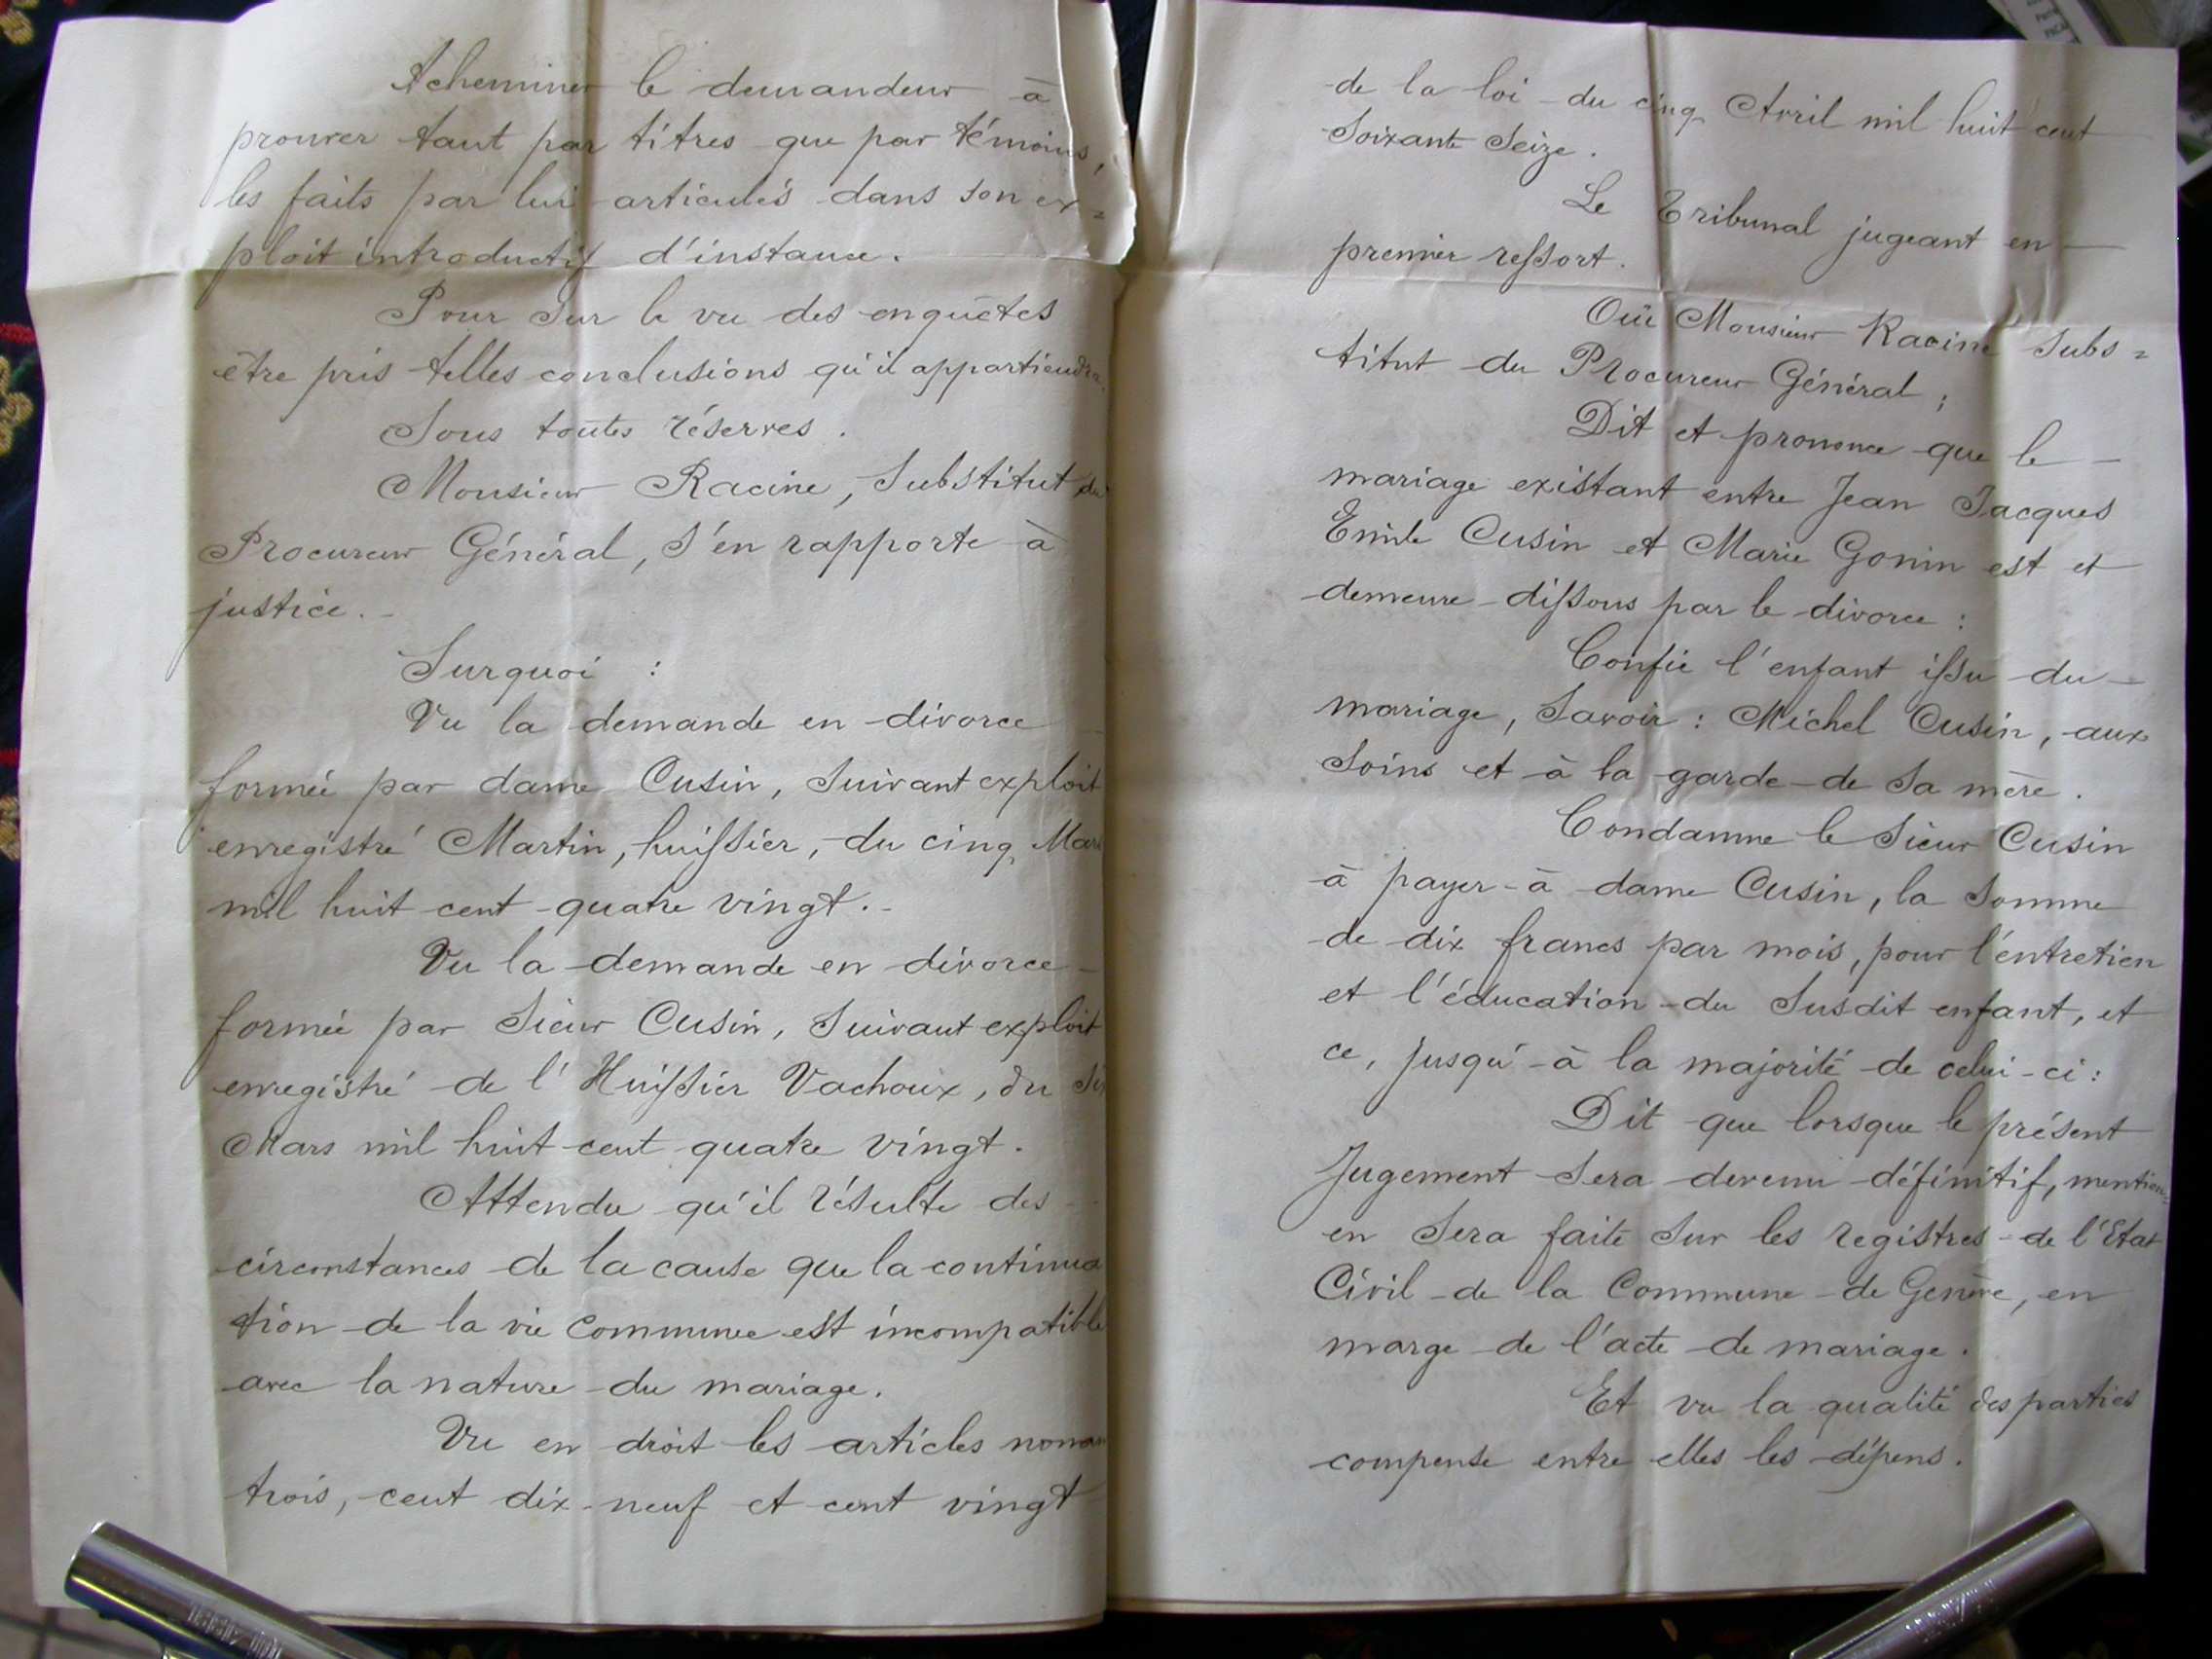 Acheminer le demandeur à
prouver tant par titres que par témoins,
les faits par lui articulés dans son ex=
ploit introductif d'instance.
Pour sur le vu des enquêtes
être pris telles conclusions qu'il appartiendra.
Sous toutes réserves.
Monsieur Racine, Substitut du
Procureur Général, s'en rapporte à
justice.-
Surquoi :
Vu la demande en divorce
formée par dame Cusin, suivant exploit
enregistré Martin, huissier, du cinq Mars
mil huit cent quatre vingt.-
Vu la demande en divorce
formée par Sieur Cusin, suivant exploit
enregistré de l'Huissier Vachoux, du Six
Mars mil huit cent quatre vingt.
Attendu qu'il résulte des
circonstances de la cause que la continua
tion de la vie commune est incompatible
avec la nature du mariage.
Vu en droit les articles nonan
trois, cent dix-neuf et cent vingt
de la loi du cinq Avril mil huit cent
soixante seize.
Le Tribunal jugeant en
premier ressort.
Ouï Monsieur Racine Subs=
titut du Procureur Général ;
Dit et prononce que le
mariage existant entre Jean Jacques
Emile Cusin et Marie Gonin est et
demeure dissous par le divorce :
Confie l'enfant issu du
mariage, Savoir : Michel Cusin, aux
soins et à la garde de sa mère.
Condamne le Sieur Cusin
à payer à dame Cusin, la somme
de dix francs par mois, pour l'entretien
et l'éducation du susdit enfant, et
ce, jusqu'à la majorité de celui-ci :
Dit que lorsque le présent
Jugement sera devenu définitif, mention
en sera faite sur les registres de l'Etat
Civil de la Commune de Genève, en
marge de l'acte de mariage.
Et vu la qualité des parties
compense entre elles les dépens.